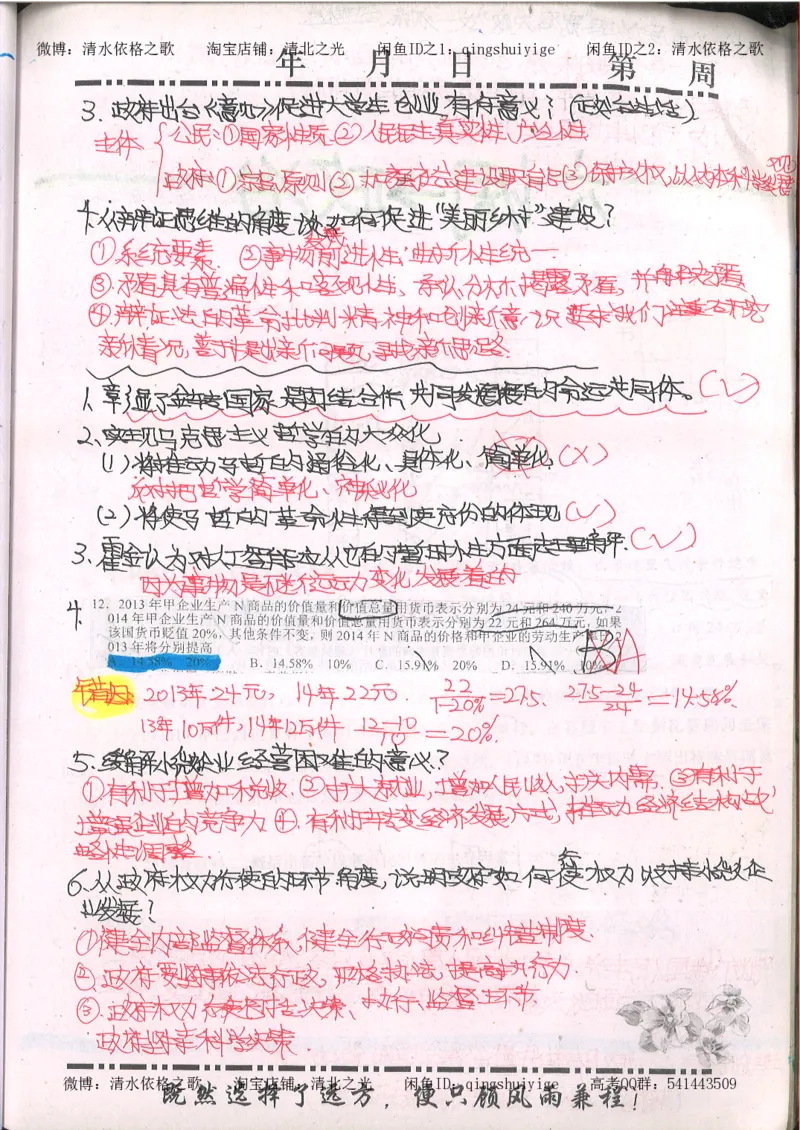 微博：清水依格之歌 淘宝店铺：清北之光 闲鱼ID之1：qingshuiyige 闲鱼ID之2：清水依格之歌
年 月 日 第 周
3. 政府出台《意见》促进大学生创业，有何意义？
主体 公民：①国家性质②人民民主真实性、广泛性
政府：①宗旨、原则②
4. 从辩证思维的角度谈如何促进“美丽乡村”建设？
①系统要素 ②事物发展前进性、曲折性统一
③矛盾具有普遍性和客观性，承认分析揭露矛盾，并
④辩证法的革命批判精神和创新意识要求我们注重研究
新情况，善于提出新问题，寻找新思路.
1. 彰显了 国家是团结合作、共同发展 的命运共同体。(√)
2. 实现马克思主义哲学的大众化
(1) 将推动马哲的通俗化、具体化、简单化 (×)
反对把哲学简单化、
(2) 将使马哲的革命性得到更充份的体现 (√)
3. 霍金认为对人工智能 (√)
因为事物是 运动变化发展着的
4.
12．2013 年甲企业生产 N 商品的价值量和价值总量用货币表示分别为 24 元和 240 万元，2
014 年甲企业生产 N 商品的价值量和价值总量用货币表示分别为 22 元和 264 万元，如果
该国货币贬值 20%，其他条件不变，则 2014 年 N 商品的价格和甲企业的劳动生产率比 2
013 年将分别提高
A．14.58% 20% B．14.58% 10% C．15.91% 20% D．15.91% 10% A
2013年24元，14年22元. 22/1-20% =27.5. 27.5-24/24 =14.58%.
13年10万件，14年12万件 12-10/10 =20%.
5. 缓解小微企业经营困难的意义？
①有利于增加税收. ②扩大就业，增加人民收入，扩大内需. ③有利于
增强企业的竞争力④. 有利于转变经济发展方式，推动经济结构战
略性调整
6. 从政府权力行使的环节角度，说明政府如何行使权力以支持小微企
业发展？
①健全内部监督体系，健全行政问责和纠错制度.
②. 政府要坚持依法行政，严格执法，提高执行力.
③. 政府权力 决策、执行、监督环节
政府坚持科学决策.
微博：清水依格之歌 淘宝店铺：清北之光 闲鱼ID：qingshuiyige 高考QQ群：541443509
既然选择了远方，便只顾风雨兼程！